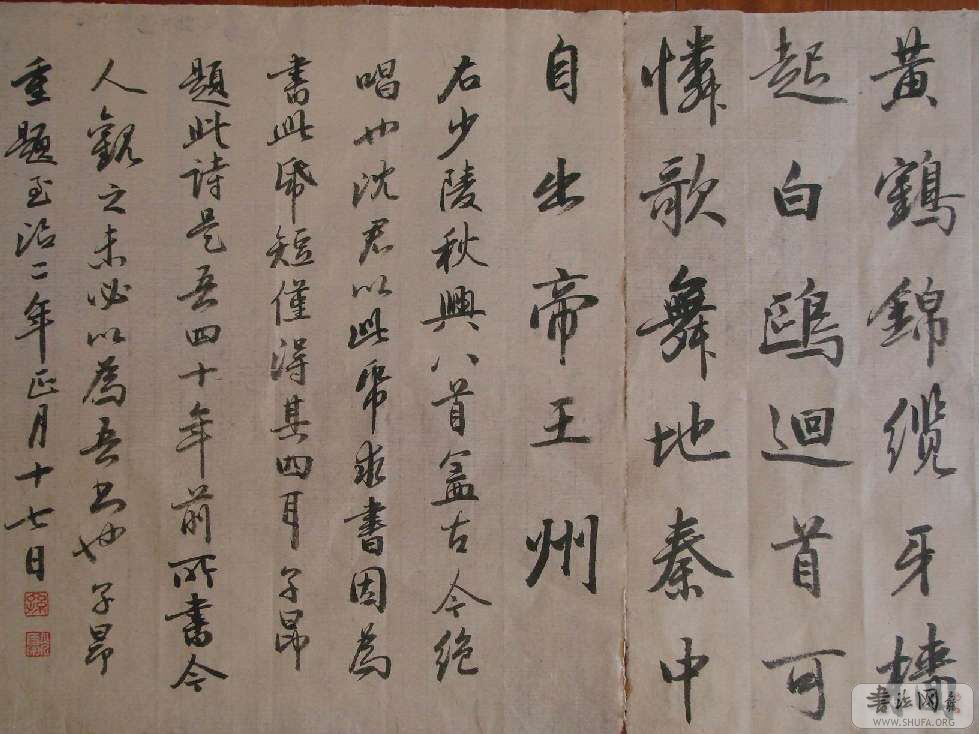 黃鶴錦纜牙檣
起白鷗迴首可
憐歌舞地秦中
自出帝王州
右少陵秋興八首盖古今絶
唱也沈君以此帋求書因為
書此帋短僅得其四耳子昂
題此詩是吾四十年前所書今
人觀之未必以為吾書也子昂
重題至治二年正月十七日
書法网
WWW.SHUFA.ORG